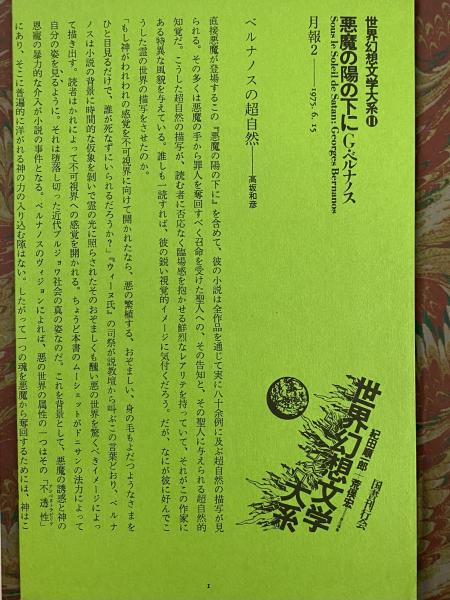 世界幻想文学大系⓫
悪魔の陽の下に G・ベルナノス
Sous le Soleil de Satan: Georges Bernanos
月報2——1975.6.15
ベルナノスの超自然——高坂和彦
直接悪魔が登場するこの『悪魔の陽の下に』を含めて、彼の小説は全作品を通じて実に八十余例に及ぶ超自然の描写が見
られる。その多くは悪魔の手から罪人を奪回すべく召命を受けた聖人への、その告知と、その聖人に与えられる超自然的
知覚だ。こうした超自然の描写が、読む者に否応なく臨場感を抱かせる鮮烈なレアリテを持っていて、それがこの作家に
ある特異な風貌を与えている。誰しも一読すれば、彼の鋭い視覚的イメージに気付くだろう。だが、なにが彼に好んでこ
うした霊の世界の描写をさせたのか。
「もし神がわれわれの感覚を不可視界に向けて開かれたなら、悪の繁殖する、おぞましい、身の毛もよだつようなさまを
ひと目見るだけで、誰が死なずにいられるだろうか？」『ウィーヌ氏』の司祭が説教壇から叫ぶこの言葉どおり、ベルナ
ノスは小説の背景に時間的な仮象を剝いで霊の光に照らされたそのおぞましくも醜い悪の世界を驚くべきイメージによっ
て描き出す。読者はかれによって不可視界への感覚を開かれる。ちょうど本書のムーシェットがドニサンの法力によって
自分の姿を見るように。それは堕落し切った近代ブルジョワ社会の真の姿なのだ。これを背景として、悪魔の誘惑と神の
恩寵の暴力的な介入が小説の事件となる。ベルナノスのヴィジョンによれば、悪の世界の属性の一つはその「不透性」
にあり、そこに普遍的に洋がれる神の力の入り込む隙はない。したがって一つの魂を悪魔から奪回するためには、神はこ
世界幻想文学大系
紀田順一郎
荒俣宏
国書刊行会
1